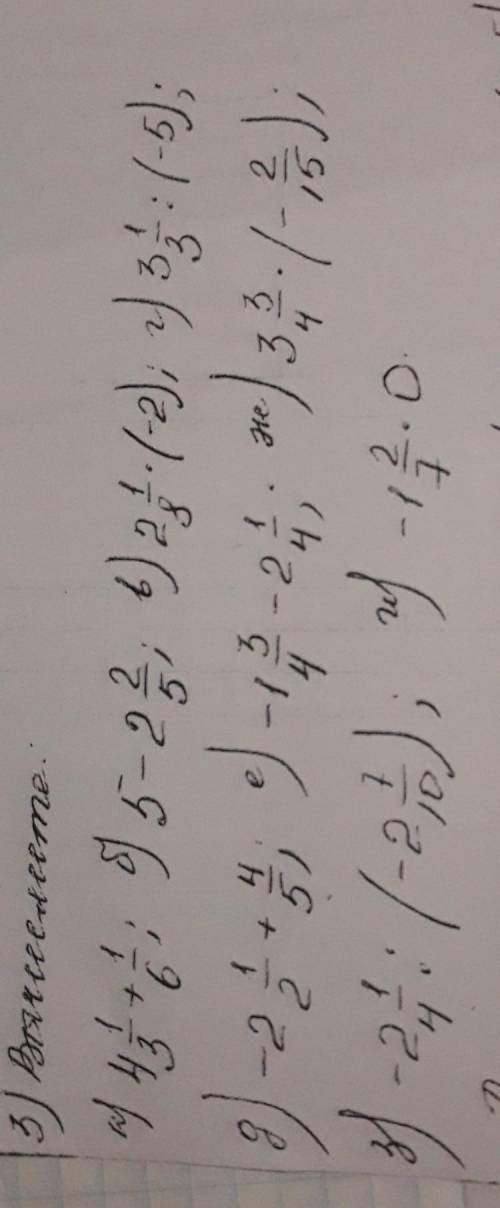 3) Вычислите.
а) 4 1/3 + 1/6; б) 5 - 2 2/5; в) 2 1/8 · (-2); г) 3 1/3 : (-5);
д) -2 1/2 + 4/5; е) -1 3/4 - 2 1/4; ж) 3 3/4 · (-2/15);
з) -2 1/4 : (-2 7/10); и) -1 2/7 · 0.